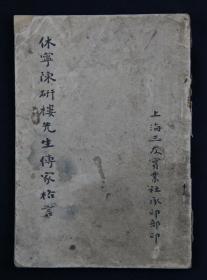 休寧陳研樓先生傳家格言
上海三友實業社承印部印